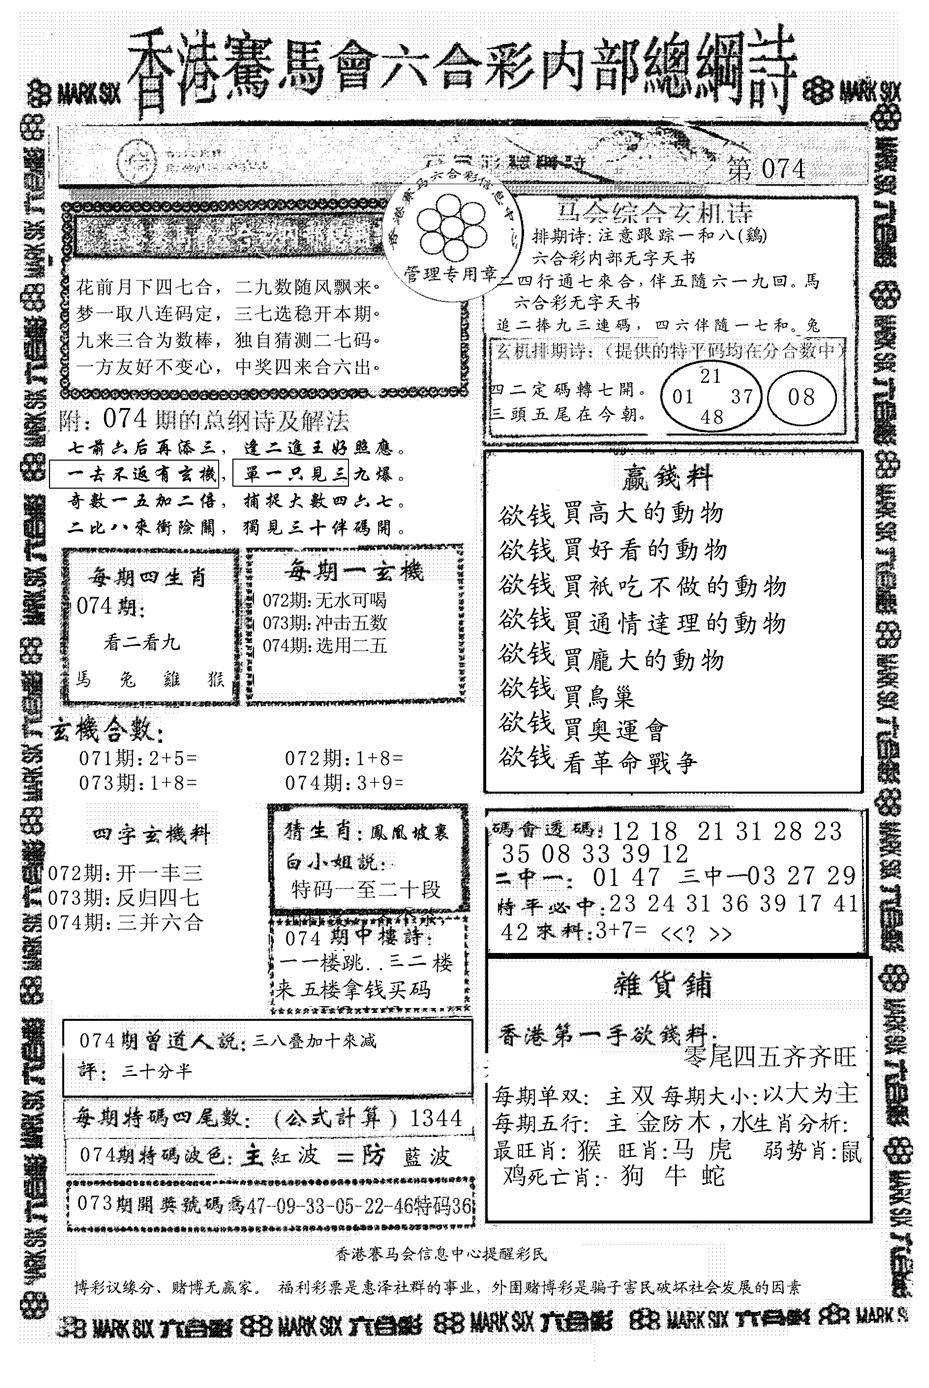 香港賽馬會六合彩内部總綱詩
MARK SIX
MARK SIX
第 074
香港赛马六合彩信息中
管理专用章
花前月下四七合，二九数随风飘来。
梦一取八连码定，三七选稳开本期。
九来三合为数棒，独自猜测二七码。
一方友好不变心，中奖四来合六出。
马会综合玄机诗
排期诗：注意跟踪一和八(鷄)
六合彩内部无字天书
二四行通七來合，伴五隨六一九回。馬
六合彩无字天书
追二捧九三連碼，四六伴隨一七和。兔
玄机排期诗：（提供的特平码均在分合数中）
四二定碼轉七開。
三頭五尾在今朝。
21
01 37
48
08
附：074 期的总纲诗及解法
七前六后再添三，逢二進王好照應。
一去不返有玄機，單一只見三九爆。
奇數一五加二倍，捕捉大數四六七。
二比八來衝險關，獨見三十伴碼開。
每期四生肖
074期：
看二看九
馬 兔 雞 猴
每期一玄機
072期：无水可喝
073期：冲击五数
074期：选用二五
赢錢料
欲钱買高大的動物
欲钱買好看的動物
欲钱買衹吃不做的動物
欲钱買通情達理的動物
欲钱買龐大的動物
欲钱買鳥巢
欲钱買奥運會
欲钱看革命戰争
玄機合數：
071期：2+5= 072期：1+8=
073期：1+8= 074期：3+9=
四字玄機料
072期：开一丰三
073期：反归四七
074期：三并六合
猜生肖：鳳凰坡裏
白小姐説：
特码一至二十段
074期中樓詩：
一一楼跳..三二楼
来五楼拿钱买码
碼會透碼：12 18 21 31 28 23
35 08 33 39 12
二中一：01 47 三中一03 27 29
特平必中：23 24 31 36 39 17 41
42來料：3+7= <<? >>
074期曾道人説：三八叠加十來减
評：三十分半
每期特碼四尾數：(公式計算) 1344
074期特碼波色：主紅波 =防 藍波
073期開獎號碼爲47-09-33-05-22-46特码36
雜貨鋪
香港第一手欲錢料：
零尾四五齐齐旺
每期单双：主双 每期大小：以大为主
每期五行：主 金防木，水生肖分析：
最旺肖：猴 旺肖：马 虎 弱势肖：鼠
鸡死亡肖：狗 牛 蛇
香港赛马会信息中心提醒彩民
博彩议缘分、赌博无赢家。 福利彩票是惠泽社群的事业，外围赌博彩是骗子害民破坏社会发展的因素
MARK SIX 六合彩 MARK SIX 六合彩 MARK SIX 六合彩 MARK SIX 六合彩 MARK SIX